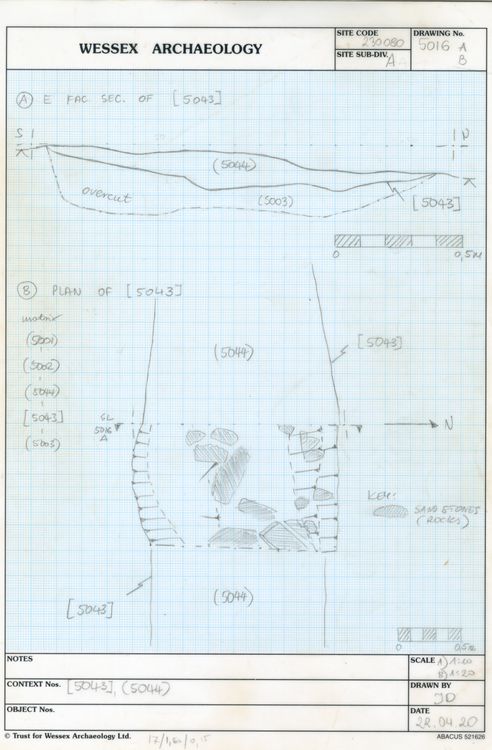 WESSEX ARCHAEOLOGY
SITE CODE
230080
SITE SUB-DIV.
A
DRAWING No.
5016 A
B
A E FAC SEC. OF [5043]
S
N
(5044)
overcut
(5003)
[5043]
0
0,5m
B PLAN OF [5043]
matrix
(5001)
(5002)
(5044)
[5043]
(5003)
(5044)
[5043]
SL
5016
A
N
KEY:
SANDSTONES
(ROCKS)
[5043]
(5044)
0
0,5m
NOTES
SCALE A) 1:10
B) 1:20
CONTEXT Nos. [5043], (5044)
DRAWN BY
JD
OBJECT Nos.
DATE
22.04.20
© Trust for Wessex Archaeology Ltd.
ABACUS 521626